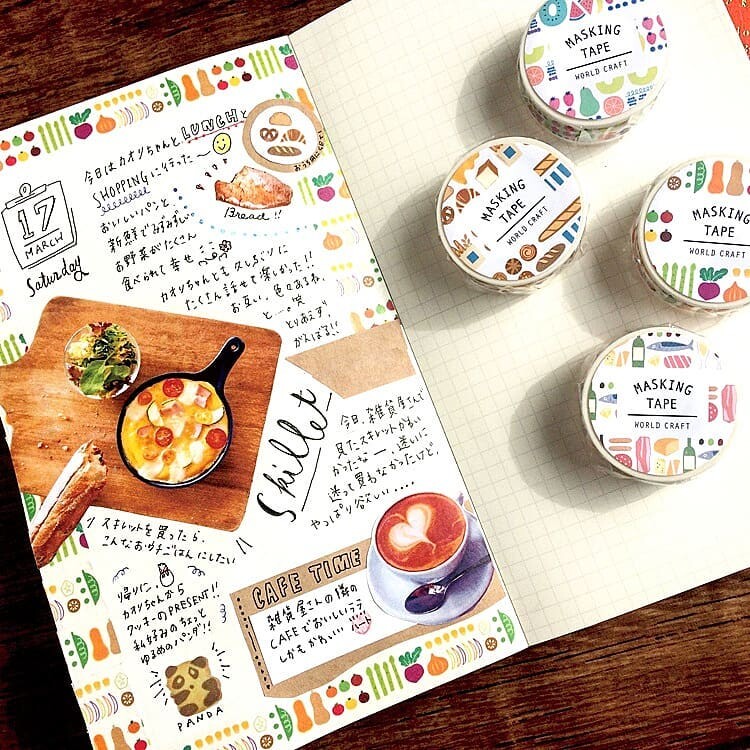 17
MARCH
Saturday
今日はカオリちゃんとLUNCHと
SHOPPINGに行った〜
おいしいパンと
新鮮でみずみずしい
お野菜がたくさん
食べられて幸せ
カオリちゃんとも久しぶりに
たくさん話せて楽しかった!!
お互い、色々あるね
と—。笑
とりあえず、
がんばる!!
Bread!!
Skillet
今日、雑貨屋さんで
見たスキレットがかわい
かったな—、迷いに
迷って買わなかったけど、
やっぱり欲しい....
スキレットを買ったら、
こんなおうちごはんにしたい
帰りに、
カオリちゃんから
クッキーのPRESENT!!
私好みのちょっと
ゆるめのパンダ!!
PANDA
CAFE TIME
雑貨屋さんの隣の
CAFEでおいしいラテ
しかもかわいい!!!ハート
MASKING
TAPE
WORLD CRAFT
MASKING
TAPE
WORLD CRAFT
MASKING
TAPE
WORLD CRAFT
MASKING
TAPE
WORLD CRAFT